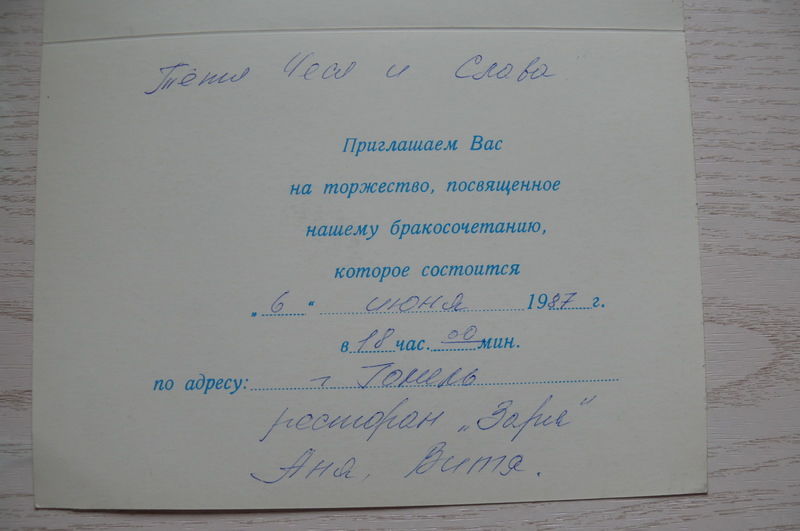 Тётя Чеся и Слава
Приглашаем Вас
на торжество, посвященное
нашему бракосочетанию,
которое состоится
„6“ июня 1987 г.
в 18 час. 00 мин.
по адресу: г Гомель
ресторан „Заря“
Аня, Витя.